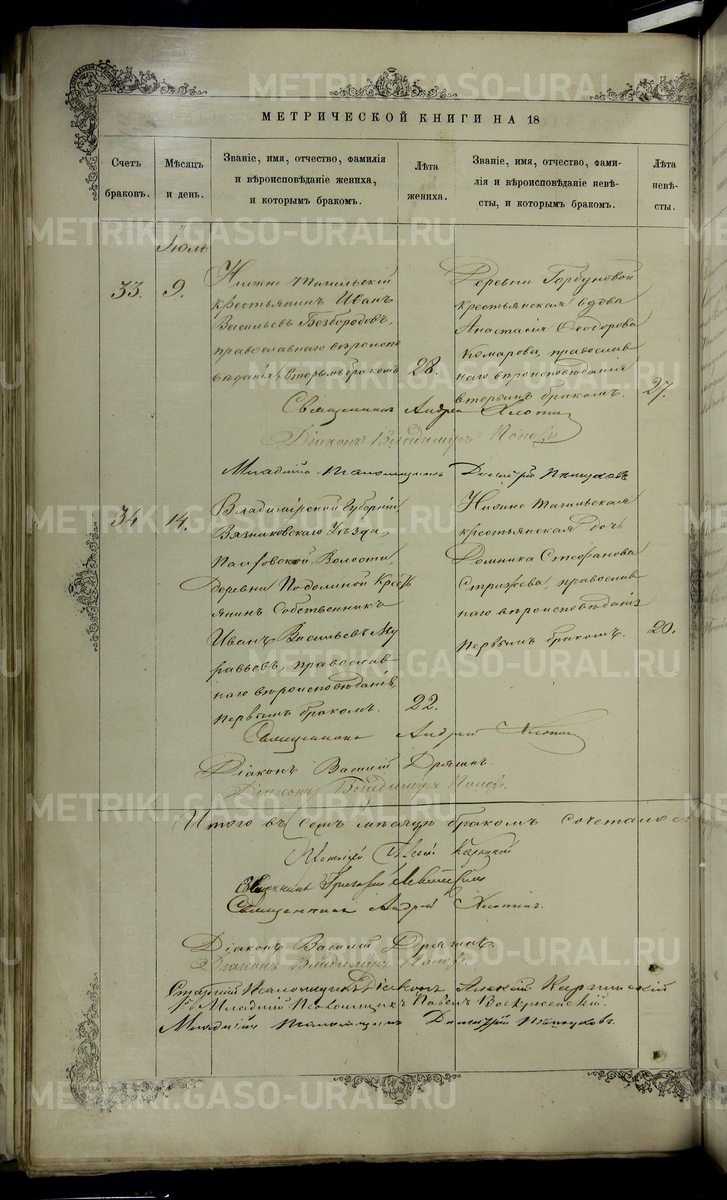 МЕТРИЧЕСКОЙ КНИГИ НА 18
Счетъ браковъ.
Мѣсяцъ и день.
Званіе, имя, отчество, фамилія
и вѣроисповѣданіе жениха,
и которымъ бракомъ.
Лѣта жениха.
Званіе, имя, отчество, фами-
лія и вѣроисповѣданіе невѣ-
сты, и которымъ бракомъ.
Лѣта невѣ-
сты.
Іюль
33.
9.
Нижне Тагильскій
крестьянинъ Иванъ
Васильевъ Безбородовъ,
православнаго вѣроиспо
вѣданія, вторымъ бракомъ
28.
Деревни Горбуновой
крестьянская вдова
Анастасія Ѳеодорова
Комарова, православ
наго вѣроисповѣданія
вторымъ бракомъ.
27.
Священникъ Андрей
Діаконъ Владимиръ Поповъ
Младшій Псаломщикъ Димитрій
34
14.
Владимірской Губерніи,
Вязниковскаго Уѣзда,
Волости,
Деревни Крест
янинъ Собственникъ
Иванъ Васильевъ Му
равьевъ, православ
наго вѣроисповѣданія,
первымъ бракомъ.
22.
Нижне Тагильская
крестьянская дочь
Домника Стефанова
Стрижева, православ
наго вѣроисповѣданія
первымъ бракомъ.
20.
Священникъ Андрей
Діаконъ Василій
Діаконъ Владимиръ Поповъ.
Итого въ Іюлѣ мѣсяцѣ бракомъ сочеталось
Священникъ Григорій
Священникъ Андрей
Діаконъ Василій
Діаконъ Владимиръ Поповъ.
Старшій Псаломщикъ Діаконъ Алексій Карпинскій
Младшій Псаломщикъ Павелъ Воскресенскій.
Младшій Псаломщикъ Димитрій
METRIKI.GASO-URAL.RU